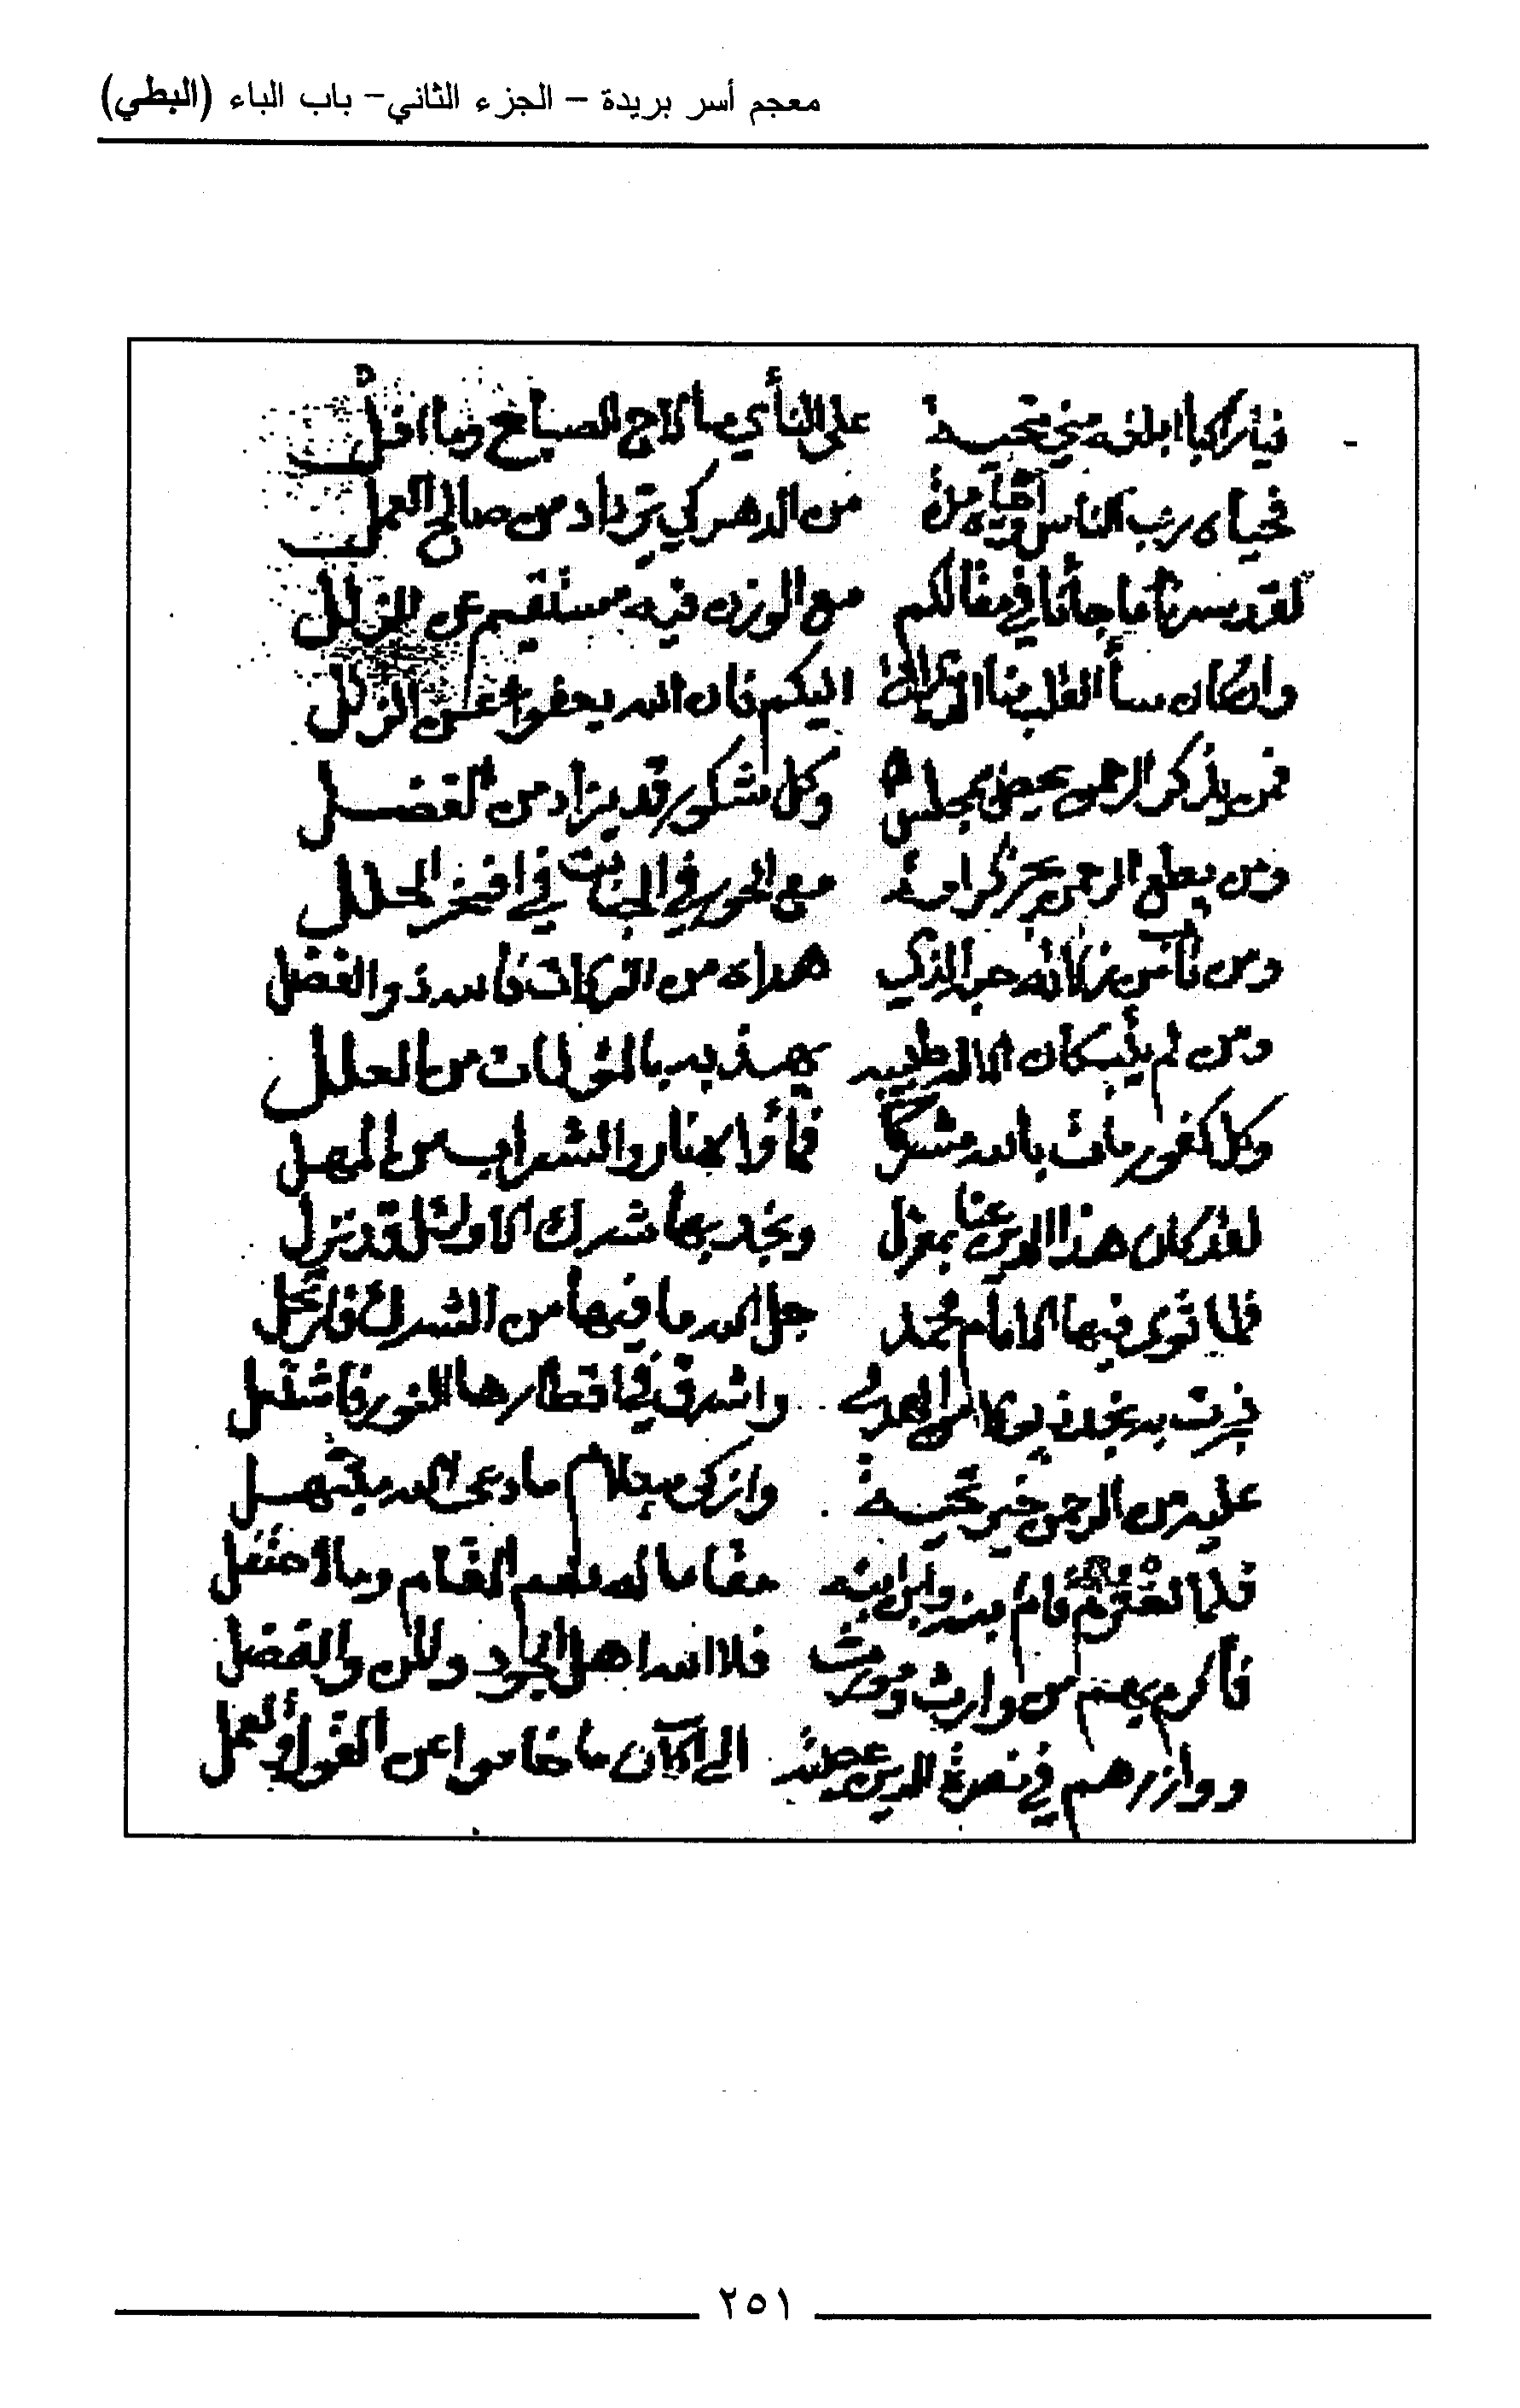 معجم أسر بريدة – الجزء الثاني– باب الباء (البطي)
فيا راكبا ابلغه مني تحية على النأي ما لاح الصباح وما افل
فحياه رب الناس من الدهر كي تزداد من صالح العمل
لقد سرنا ما جائنا في مقالكم مع الوزن فيه مستقيم عن الزلل
وان كان سأ القلب منا اليكم فان الله يعفوا عن الزلل
فمن يذكر الرحمن يحيى بمجلس وكل شكور قد يزاد من الفضل
ومن يطع الرحمن يجز كرامة مع الحور في الجنات في افخر الحلل
ومن من حبه الذي هداه من فالله ذو الفضل
ومن لم كان الاله طبيبه يهذبه بالمؤلمات من العلل
وكل كفور مات بالله مشركا فمأواه نار والشراب من المهل
لقد كان هذا الدين عنا بمعزل ونجد بها شرك الاوائل قد نزل
فلما ثوى فيها الامام محمد جلى الله ما فيها من الشرك فارتحل
به نجد الهدى واشرق في اقطارها النور فاشتعل
عليه من الرحمن خير تحية وازكى سلام ما دعى الله مبتهل
فلما قام وابن ابنه مقاما له نعم المقام وما احتفل
فأكرم بهم من وارث ومورث فلله اهل الجود والمن والفضل
ووازرهم في نصرة الدين عصبة الى الآن ما خاموا عن القول والعمل
٢٥١